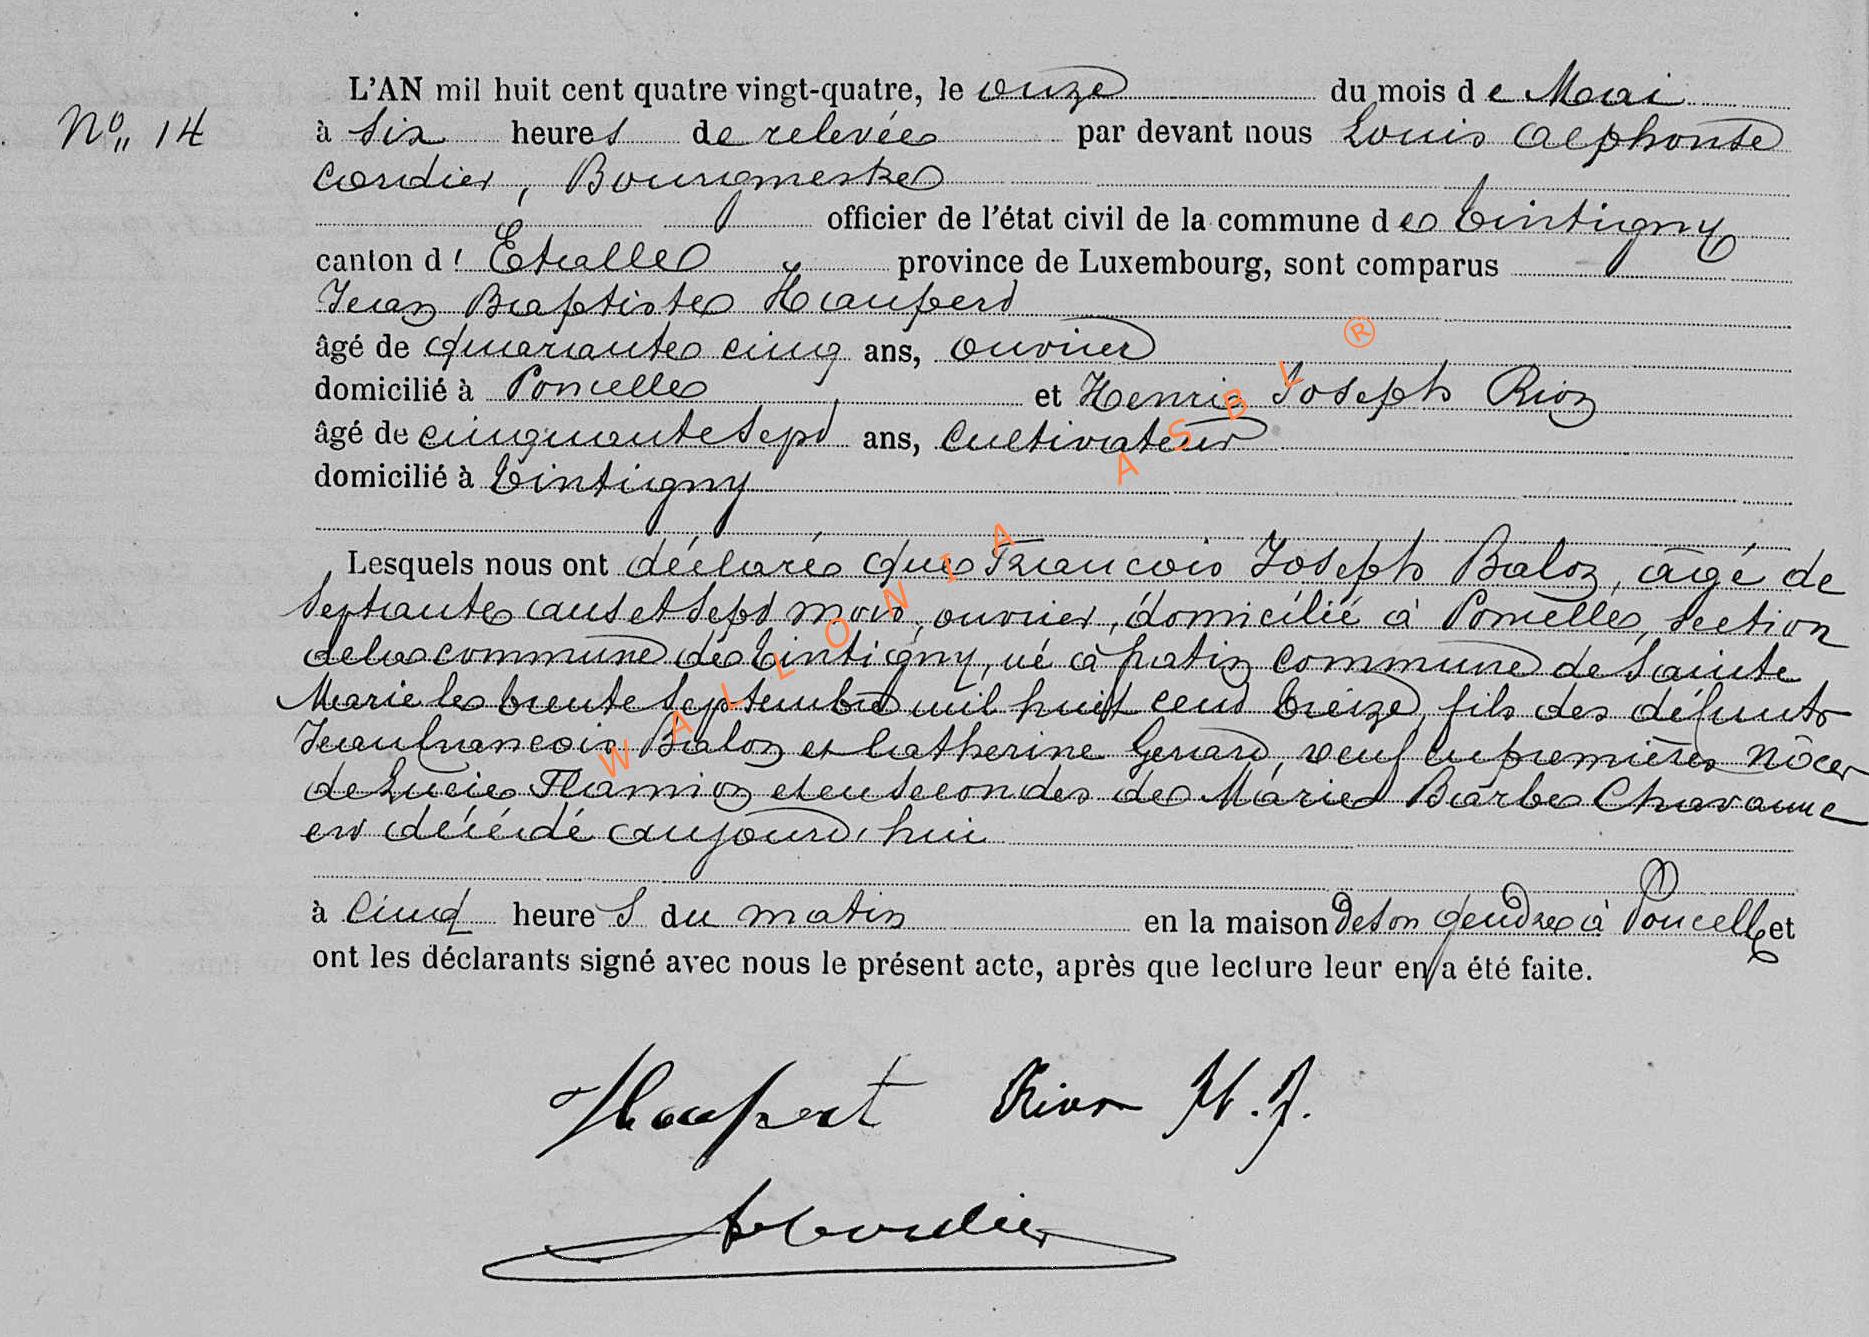 L'AN mil huit cent quatre vingt-quatre, le onze du mois de Mai
N° 14
à six heures de relevée par devant nous Louis Alphonse
Cordier, Bourgmestre
officier de l'état civil de la commune de Tintigny
canton d'Etalle province de Luxembourg, sont comparus
Jean Baptiste Haupert
âgé de quarante cinq ans, ouvrier
domicilié à Poncelle et Henri Joseph Rion
âgé de cinquante sept ans, cultivateur
domicilié à Tintigny
Lesquels nous ont déclaré que François Joseph Balon, âgé de
septante ans et sept mois, ouvrier, domicilié à Poncelle, section
de la commune de Tintigny, né à fratin commune de Sainte
Marie le trente Septembre mil huit cent treize, fils des défunts
Jean françois Balon et Catherine Gerard, veuf en premières nôces
de Lucie Flamion et en secondes de Marie Barbe Chavanne
est décédé aujourd'hui
à cinq heures du matin en la maison de son gendre à Poncelle et
ont les déclarants signé avec nous le présent acte, après que lecture leur en a été faite.
Haupert Rion H.J.
Cordier
WALLONIA ASBL ®